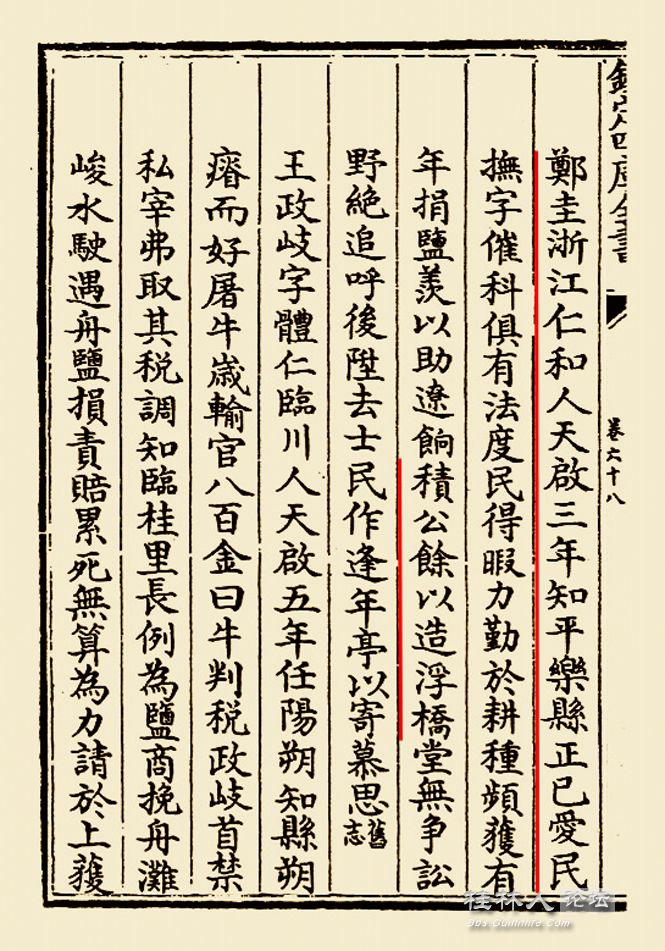 欽定四庫全書
卷六十八
鄭圭浙江仁和人天啟三年知平樂縣正已愛民
撫字催科俱有法度民得暇力勤於耕種頻獲有
年捐鹽羨以助遼餉積公餘以造浮橋堂無争訟
野絶追呼後陞去士民作逢年亭以寄慕思舊志
王政岐字體仁臨川人天啟五年任陽朔知縣朔
瘠而好屠牛嵗輸官八百金曰牛判税政岐首禁
私宰弗取其税調知臨桂里長例為鹽商挽舟灘
峻水駛遇舟鹽損責賠累死無算為力請於上獲
桂林人论坛
bbs.Guilinlife.com